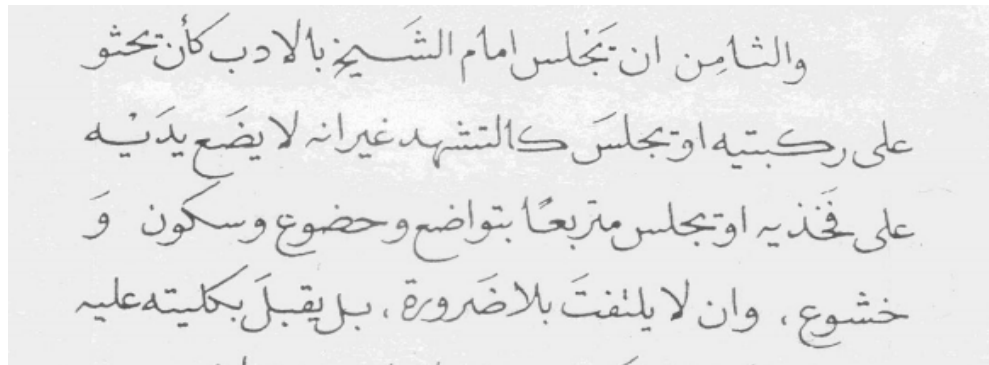 والثامِن ان تَجلس امام الشَيخِ بالادب كأن تجثو
على ركبتيه او تجلسَ كالتشهد غير انه لا يضَع يدَيْه
على فَخذيه او تجلس متربعًا بتواضع وحضوع وسكون وَ
خشوع ، وان لا يلتفتَ بلا ضَرورة ، بل يقبلَ بكليته عليه